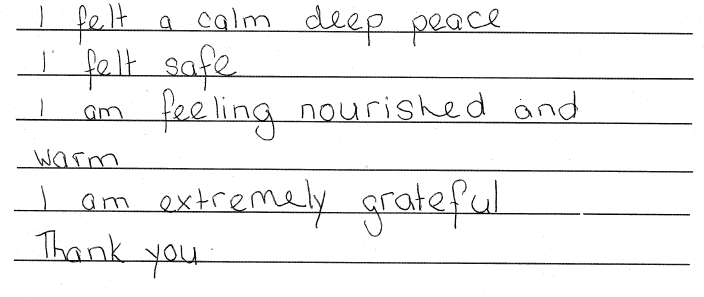 I felt a calm deep peace
I felt safe
I am feeling nourished and
warm
I am extremely grateful
Thank you